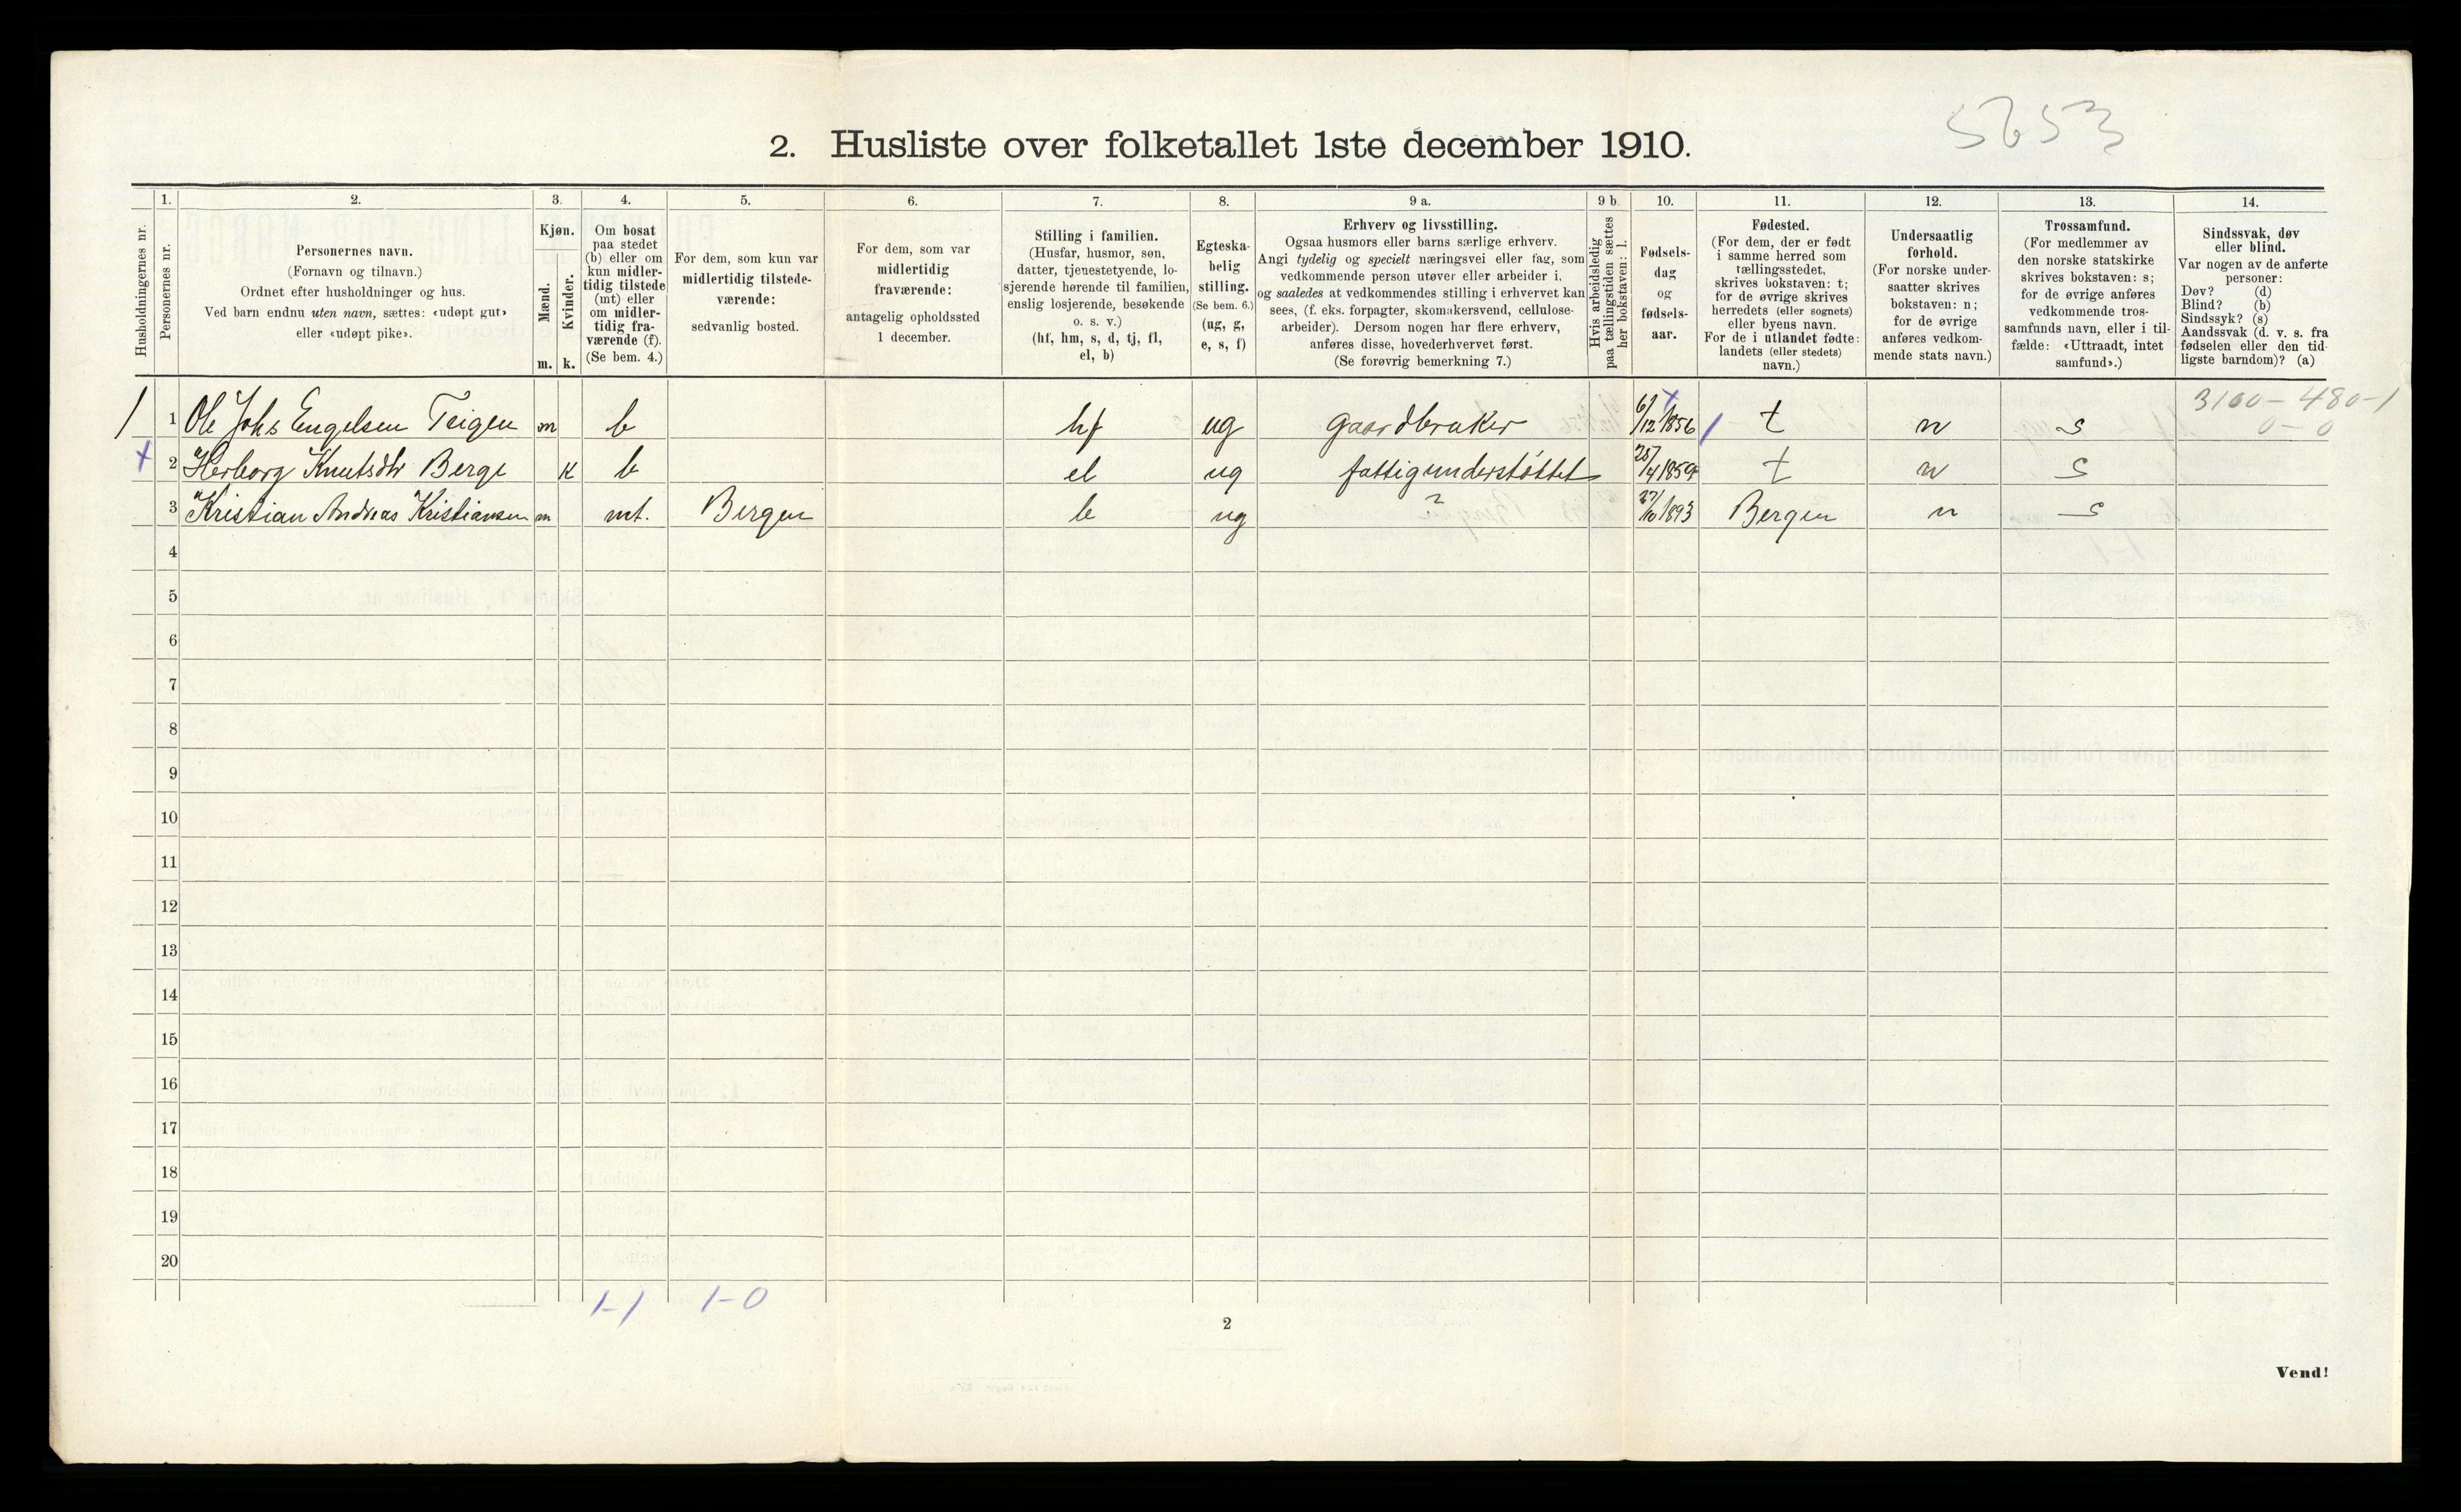 5653
2. Husliste over folketallet 1ste december 1910.
Husholdningernes nr.
1.
Personernes nr.
2.
Personernes navn.
(Fornavn og tilnavn.)
Ordnet efter husholdninger og hus.
Ved barn endnu uten navn, sættes: «udøpt gut»
eller «udøpt pike».
3.
Kjøn.
Mænd.
Kvinder.
m. k.
4.
Om bosat
paa stedet
(b) eller om
kun midler-
tidig tilstede
(mt) eller
om midler-
tidig fra-
værende (f).
(Se bem. 4.)
5.
For dem, som kun var
midlertidig tilstede-
værende:
sedvanlig bosted.
6.
For dem, som var
midlertidig
fraværende:
antagelig opholdssted
1 december.
7.
Stilling i familien.
(Husfar, husmor, søn,
datter, tjenestetyende, lo-
sjerende hørende til familien,
enslig losjerende, besøkende
o. s. v.)
(hf, hm, s, d, tj, fl,
el, b)
8.
Egteska-
belig
stilling.
(Se bem. 6.)
(ug, g,
e, s, f)
9 a.
Erhverv og livsstilling.
Ogsaa husmors eller barns særlige erhverv.
Angi tydelig og specielt næringsvei eller fag, som
vedkommende person utøver eller arbeider i,
og saaledes at vedkommendes stilling i erhvervet kan
sees, (f. eks. forpagter, skomakersvend, cellulose-
arbeider). Dersom nogen har flere erhverv,
anføres disse, hovederhvervet først.
(Se forøvrig bemerkning 7.)
9 b.
Hvis arbeidsledig
paa tællingstiden sættes
her bokstaven: l.
10.
Fødsels-
dag
og
fødsels-
aar.
11.
Fødested.
(For dem, der er født
i samme herred som
tællingsstedet,
skrives bokstaven: t;
for de øvrige skrives
herredets (eller sognets)
eller byens navn.
For de i utlandet fødte:
landets (eller stedets)
navn.)
12.
Undersaatlig
forhold.
(For norske under-
saatter skrives
bokstaven: n;
for de øvrige
anføres vedkom-
mende stats navn.)
13.
Trossamfund.
(For medlemmer av
den norske statskirke
skrives bokstaven: s;
for de øvrige anføres
vedkommende tros-
samfunds navn, eller i til-
fælde: «Uttraadt, intet
samfund».)
14.
Sindssvak, døv
eller blind.
Var nogen av de anførte
personer:
Døv? (d)
Blind? (b)
Sindssyk? (s)
Aandssvak (d. v. s. fra
fødselen eller den tid-
ligste barndom)? (a)
3100 - 480 - 1
0 - 0
1 1 Ole Johs Engelsen Teigen m b hf ug gaardbruker 6/12 1856 t n s
2 Herborg Knutsdtr Berge k b el ug fattigunderstøttet 28/4 1859 t n s
3 Kristian Andreas Kristiansen m mt. Bergen b ug ? 27/10 1893 Bergen n s
4
5
6
7
8
9
10
11
12
13
14
15
16
17
18
19
20
1-1 1-0
2
Vend!